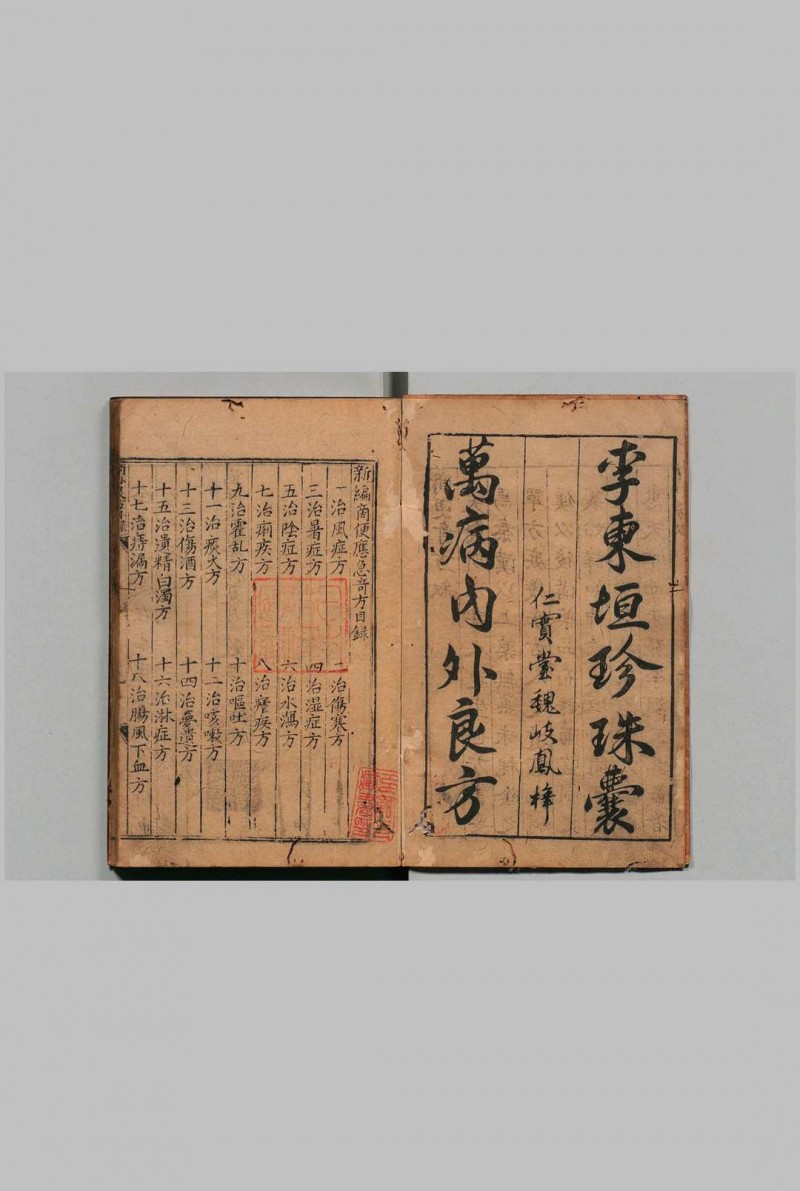 李東垣珍珠囊
仁實堂魏岐鳳梓
萬病内外良方
新編啇便應急奇方目錄
一治風症方
二治傷寒方
三治暑症方
四治湿症方
五治陰症方
六治水瀉方
七治痢疾方
八治瘧疾方
九治霍乱方
十治嘔吐方
十一治痰火方
十二治咳嗽方
十三治傷酒方
十四治夢遺方
十五治遺精白濁方
十六治淋症方
十七治痔漏方
十八治腸風下血方